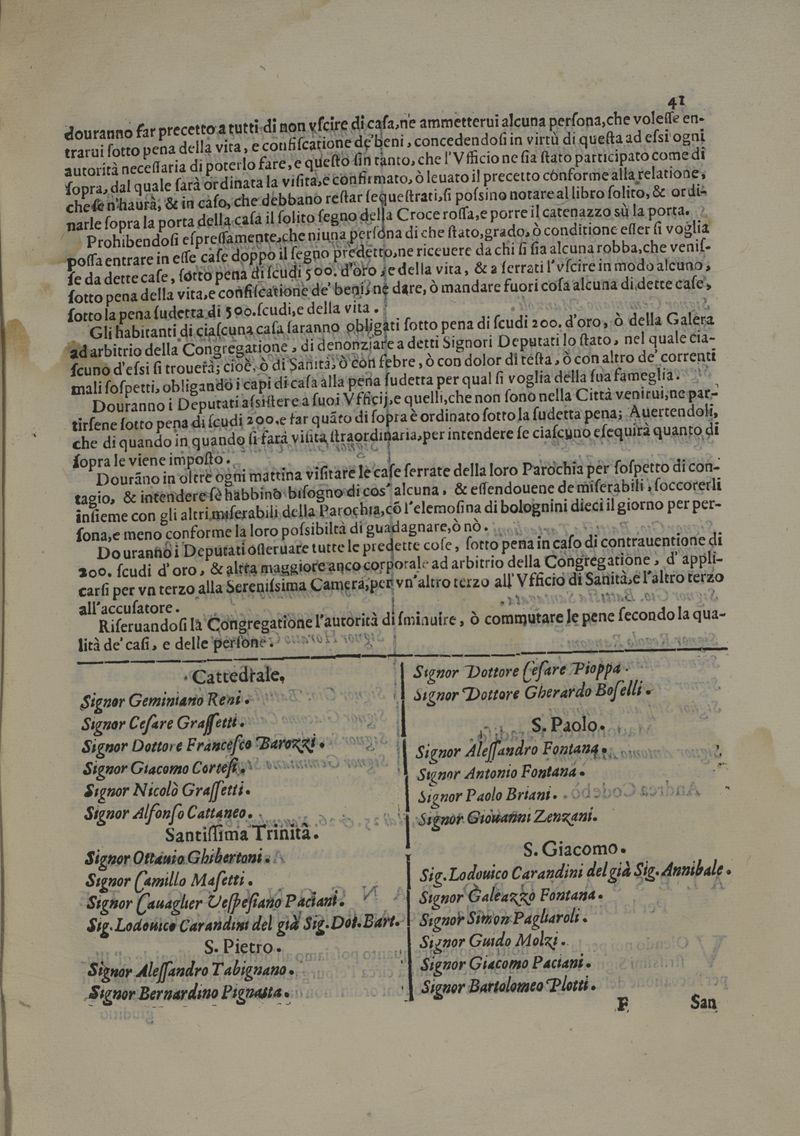 41
douranno far precetto a tutti di non vſcire di caſa, ne ammetterui alcuna perſona, che voleſſe en-
trarui ſotto pena della vita, e confiſcatione de' beni, concedendoſi in virtù di queſta ad eſsi ogni
autorità neceſſaria di poterlo fare, e queſto ſin tanto, che l'Vfficio ne ſia ſtato participato come di
ſopra, dal quale ſarà ordinata la viſita, e confirmato, ò leuato il precetto conforme alla relatione,
che ſe n'haurà; & in caſo, che debbano reſtar ſequeſtrati, ſi poſsino notare al libro ſolito, & ordi-
narle ſopra la porta della caſa il ſolito ſegno della Croce roſſa, e porre il catenazzo sù la porta.
Prohibendoſi eſpreſſamente, che niuna perſona di che ſtato, grado, ò conditione eſſer ſi voglia
poſſa entrare in eſſe caſe doppo il ſegno predetto, ne riceuere da chi ſi ſia alcuna robba, che veniſ-
ſe da dette caſe, ſotto pena di ſcudi 500. d'oro, e della vita, & a ſerrati l'vſcire in modo alcuno,
ſotto pena della vita, e confiſcatione de' beni, nè dare, ò mandare fuori coſa alcuna di dette caſe,
ſotto la pena ſudetta di 500. ſcudi, e della vita.
Gli habitanti di ciaſcuna caſa ſaranno obligati ſotto pena di ſcudi 200. d'oro, ò della Galera
ad arbitrio della Congregatione, di denonziare a detti Signori Deputati lo ſtato, nel quale cia-
ſcuno d'eſsi ſi trouerà; cioè, ò di Sanità, ò con febre, ò con dolor di teſta, ò con altro de' correnti
mali ſoſpetti, obligando i capi di caſa alla pena ſudetta per qual ſi voglia della ſua fameglia.
Douranno i Deputati aſsiſtere a ſuoi Vfficij, e quelli, che non ſono nella Città venirui, ne par-
tirſene ſotto pena di ſcudi 200. e far quãto di ſopra è ordinato ſotto la ſudetta pena; Auertendoli,
che di quando in quando ſi farà viſita ſtraordinaria, per intendere ſe ciaſcuno eſequirà quanto di
ſopra le viene impoſto.
Dourãno in oltre ogni mattina viſitare le caſe ſerrate della loro Parochia per ſoſpetto di con-
tagio, & intendere ſe habbino biſogno di cos' alcuna, & eſſendouene de miſerabili, ſoccorerli
inſieme con gli altri miſerabili della Parochia, cõ l'elemoſina di bolognini dieci il giorno per per-
ſona, e meno conforme la loro poſsibiltà di guadagnare, ò nò.
Douranno i Deputati oſſeruare tutte le predette coſe, ſotto pena in caſo di contrauentione di
200. ſcudi d'oro, & altra maggiore anco corporale ad arbitrio della Congregatione, d'appli-
carſi per vn terzo alla Sereniſsima Camera, per vn'altro terzo all'Vfficio di Sanità, e l'altro terzo
all'accuſatore.
Riſeruandoſi la Congregatione l'autorità di ſminuire, ò commutare le pene ſecondo la qua-
lità de' caſi, e delle perſone.
Cattedrale,
Signor Geminiano Reni.
Signor Ceſare Graſſetti.
Signor Dottore Franceſco Barozzi.
Signor Giacomo Corteſi.
Signor Nicolò Graſſetti.
Signor Alfonſo Cattaneo.
Santiſſima Trinità.
Signor Ottauio Ghibertoni.
Signor Camillo Maſetti.
Signor Cauaglier Veſpeſiano Paciani.
Sig. Lodouico Carandini del già Sig. Dot. Bart.
S. Pietro.
Signor Aleſſandro Tabignano.
Signor Bernardino Pignatta.
Signor Dottore Ceſare Pioppa.
Signor Dottore Gherardo Boſelli.
S. Paolo.
Signor Aleſſandro Fontana.
Signor Antonio Fontana.
Signor Paolo Briani.
Signor Giouanni Zenzani.
S. Giacomo.
Sig. Lodouico Carandini del già Sig. Annibale.
Signor Galeazzo Fontana.
Signor Simon Pagliaroli.
Signor Guido Molzi.
Signor Giacomo Paciani.
Signor Bartolomeo Plotti.
F San